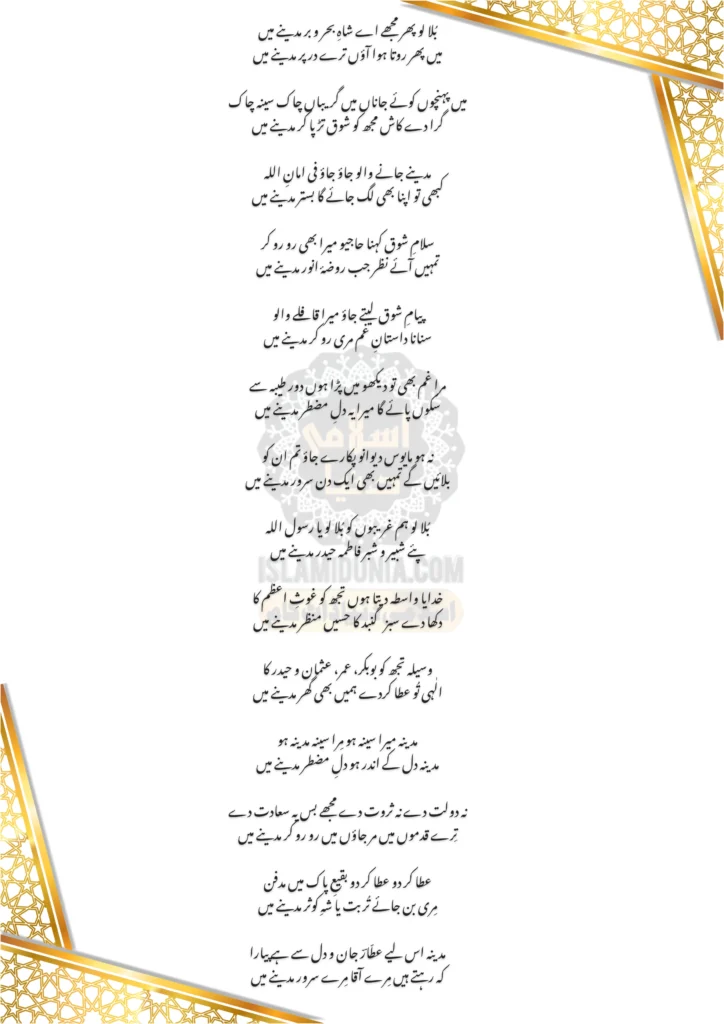 بُلا لو پھر مجھے اے شاہِ بحر و بر مدینے میں
میں پھر روتا ہوا آؤں ترے در پر مدینے میں
میں پہنچوں کوئے جاناں میں گریباں چاک سینہ چاک
گرا دے کاش مجھ کو شوق تڑپا کر مدینے میں
مدینے جانے والو جاؤ جاؤ فی امانِ اللہ
کبھی تو اپنا بھی لگ جائے گا بستر مدینے میں
سلامِ شوق کہنا حاجیو میرا بھی رو رو کر
تمہیں آئے نظر جب روضۂ انور مدینے میں
پیامِ شوق لیتے جاؤ میرا قافلے والو
سنانا داستانِ غم مری رو کر مدینے میں
مرا غم بھی تو دیکھو میں پڑا ہوں دور طیبہ سے
سکوں پائے گا میرا یہ دلِ مضطر مدینے میں
نہ ہو مایوس دیوانو پکارے جاؤ تم ان کو
بلائیں گے تمہیں بھی ایک دن سرور مدینے میں
بُلا لو ہم غریبوں کو بُلا لو یا رسول اللہ
پئے شبیر و شبر فاطمہ حیدر مدینے میں
خدایا واسطہ دیتا ہوں تجھ کو غوثِ اعظم کا
دکھا دے سبز گنبد کا حسیں منظر مدینے میں
وسیلہ تجھ کو بوبکر، عمر، عثمان و حیدر کا
الٰہی تُو عطا کردے ہمیں بھی گھر مدینے میں
مدینہ میرا سینہ ہو مِرا سینہ مدینہ ہو
مدینہ دل کے اندر ہو دلِ مضطر مدینے میں
نہ دولت دے نہ ثروت دے مجھے بس یہ سعادت دے
تِرے قدموں میں مر جاؤں میں رو رو کر مدینے میں
عطا کر دو عطا کر دو بقیعِ پاک میں مدفن
مِری بن جائے تُربت یا شہِ کوثر مدینے میں
مدینہ اس لیے عطارؔ جان و دل سے ہے پیارا
کہ رہتے ہیں مِرے آقا مِرے سرور مدینے میں
اسلامی
دنیا
ISLAMIDONIA.COM